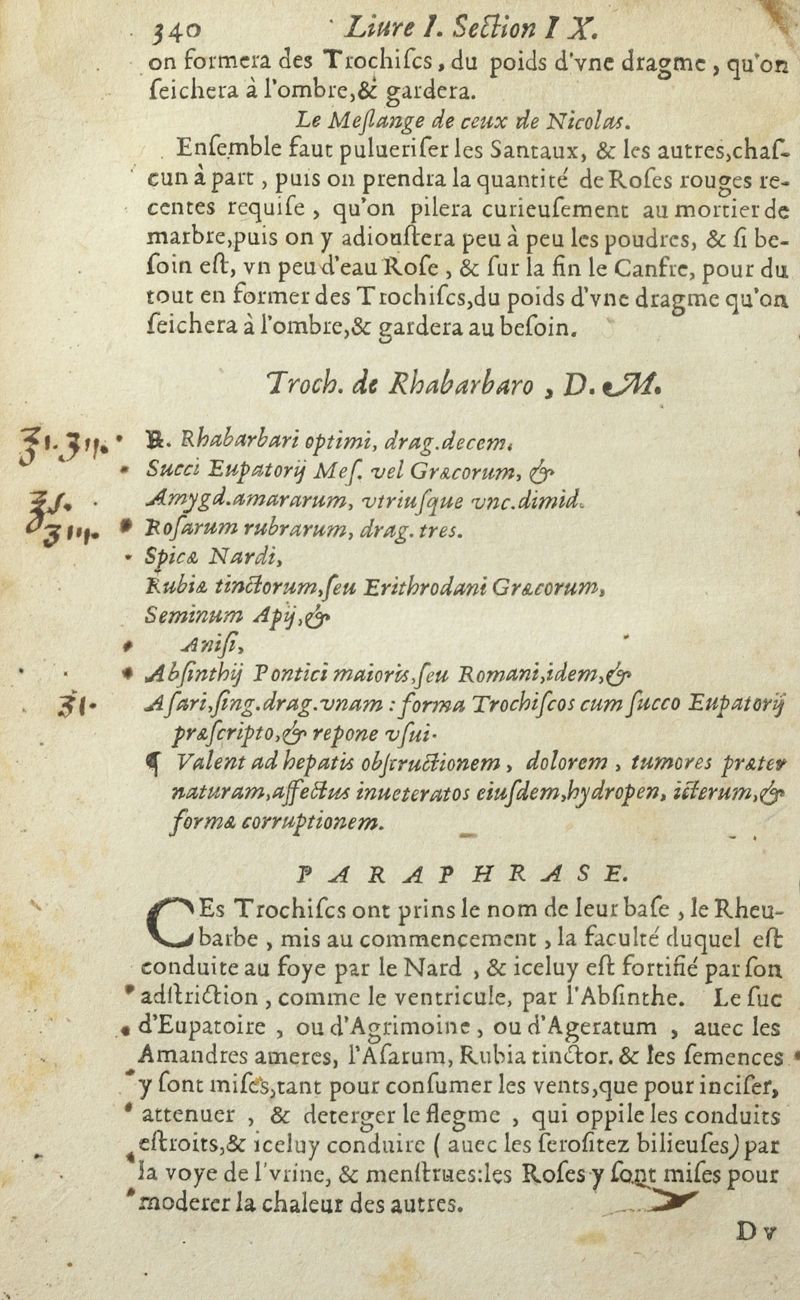 340 Liure I. Section IX.
on formera des Trochiſcs, du poids d'vne dragme, qu'on
ſeichera à l'ombre,& gardera.
Le Meſlange de ceux de Nicolas.
Enſemble faut puluerifer les Santaux, & les autres,chaſ-
cun à part, puis on prendra la quantité de Roſes rouges re-
centes requiſe, qu'on pilera curieuſement au mortier de
marbre,puis on y adiouſtera peu à peu les poudres, & ſi be-
ſoin eſt, vn peu d'eau Roſe, & ſur la fin le Canfre, pour du
tout en former des Trochiſcs,du poids d'vne dragme qu'on
ſeichera à l'ombre,& gardera au beſoin.
Troch. de Rhabarbaro, D. M.
℞. Rhabarbari optimi, drag.decem.
Succi Eupatorij Meſ. vel Græcorum, &
Amygd.amararum, vtriuſque vnc.dimid.
Roſarum rubrarum, drag. tres.
Spicæ Nardi,
Rubiæ tinctorum,ſeu Erithrodani Græcorum,
Seminum Apij,&
Aniſi,
Abſinthij Pontici maioris,ſeu Romani,idem,&
Aſari,ſing.drag.vnam : forma Trochiſcos cum ſucco Eupatorij
præſcripto,& repone vſui.
¶ Valent ad hepatis obſtructionem, dolorem, tumores præter
naturam,affectus inueteratos eiuſdem,hydropen, icterum,&
formæ corruptionem.
PARAPHRASE.
CEs Trochiſcs ont prins le nom de leur baſe, le Rheu-
barbe, mis au commencement, la faculté duquel eſt
conduite au foye par le Nard, & iceluy eſt fortifié par ſon
adſtriction, comme le ventricule, par l'Abſinthe. Le ſuc
d'Eupatoire, ou d'Agrimoine, ou d'Ageratum, auec les
Amandres ameres, l'Aſarum, Rubia tinctor. & les ſemences
y ſont miſes,tant pour conſumer les vents,que pour inciſer,
attenuer, & deterger le flegme, qui oppile les conduits
eſtroits,& iceluy conduire (auec les ſeroſitez bilieuſes) par
la voye de l'vrine, & menſtrues:les Roſes y ſont miſes pour
moderer la chaleur des autres.
Dv